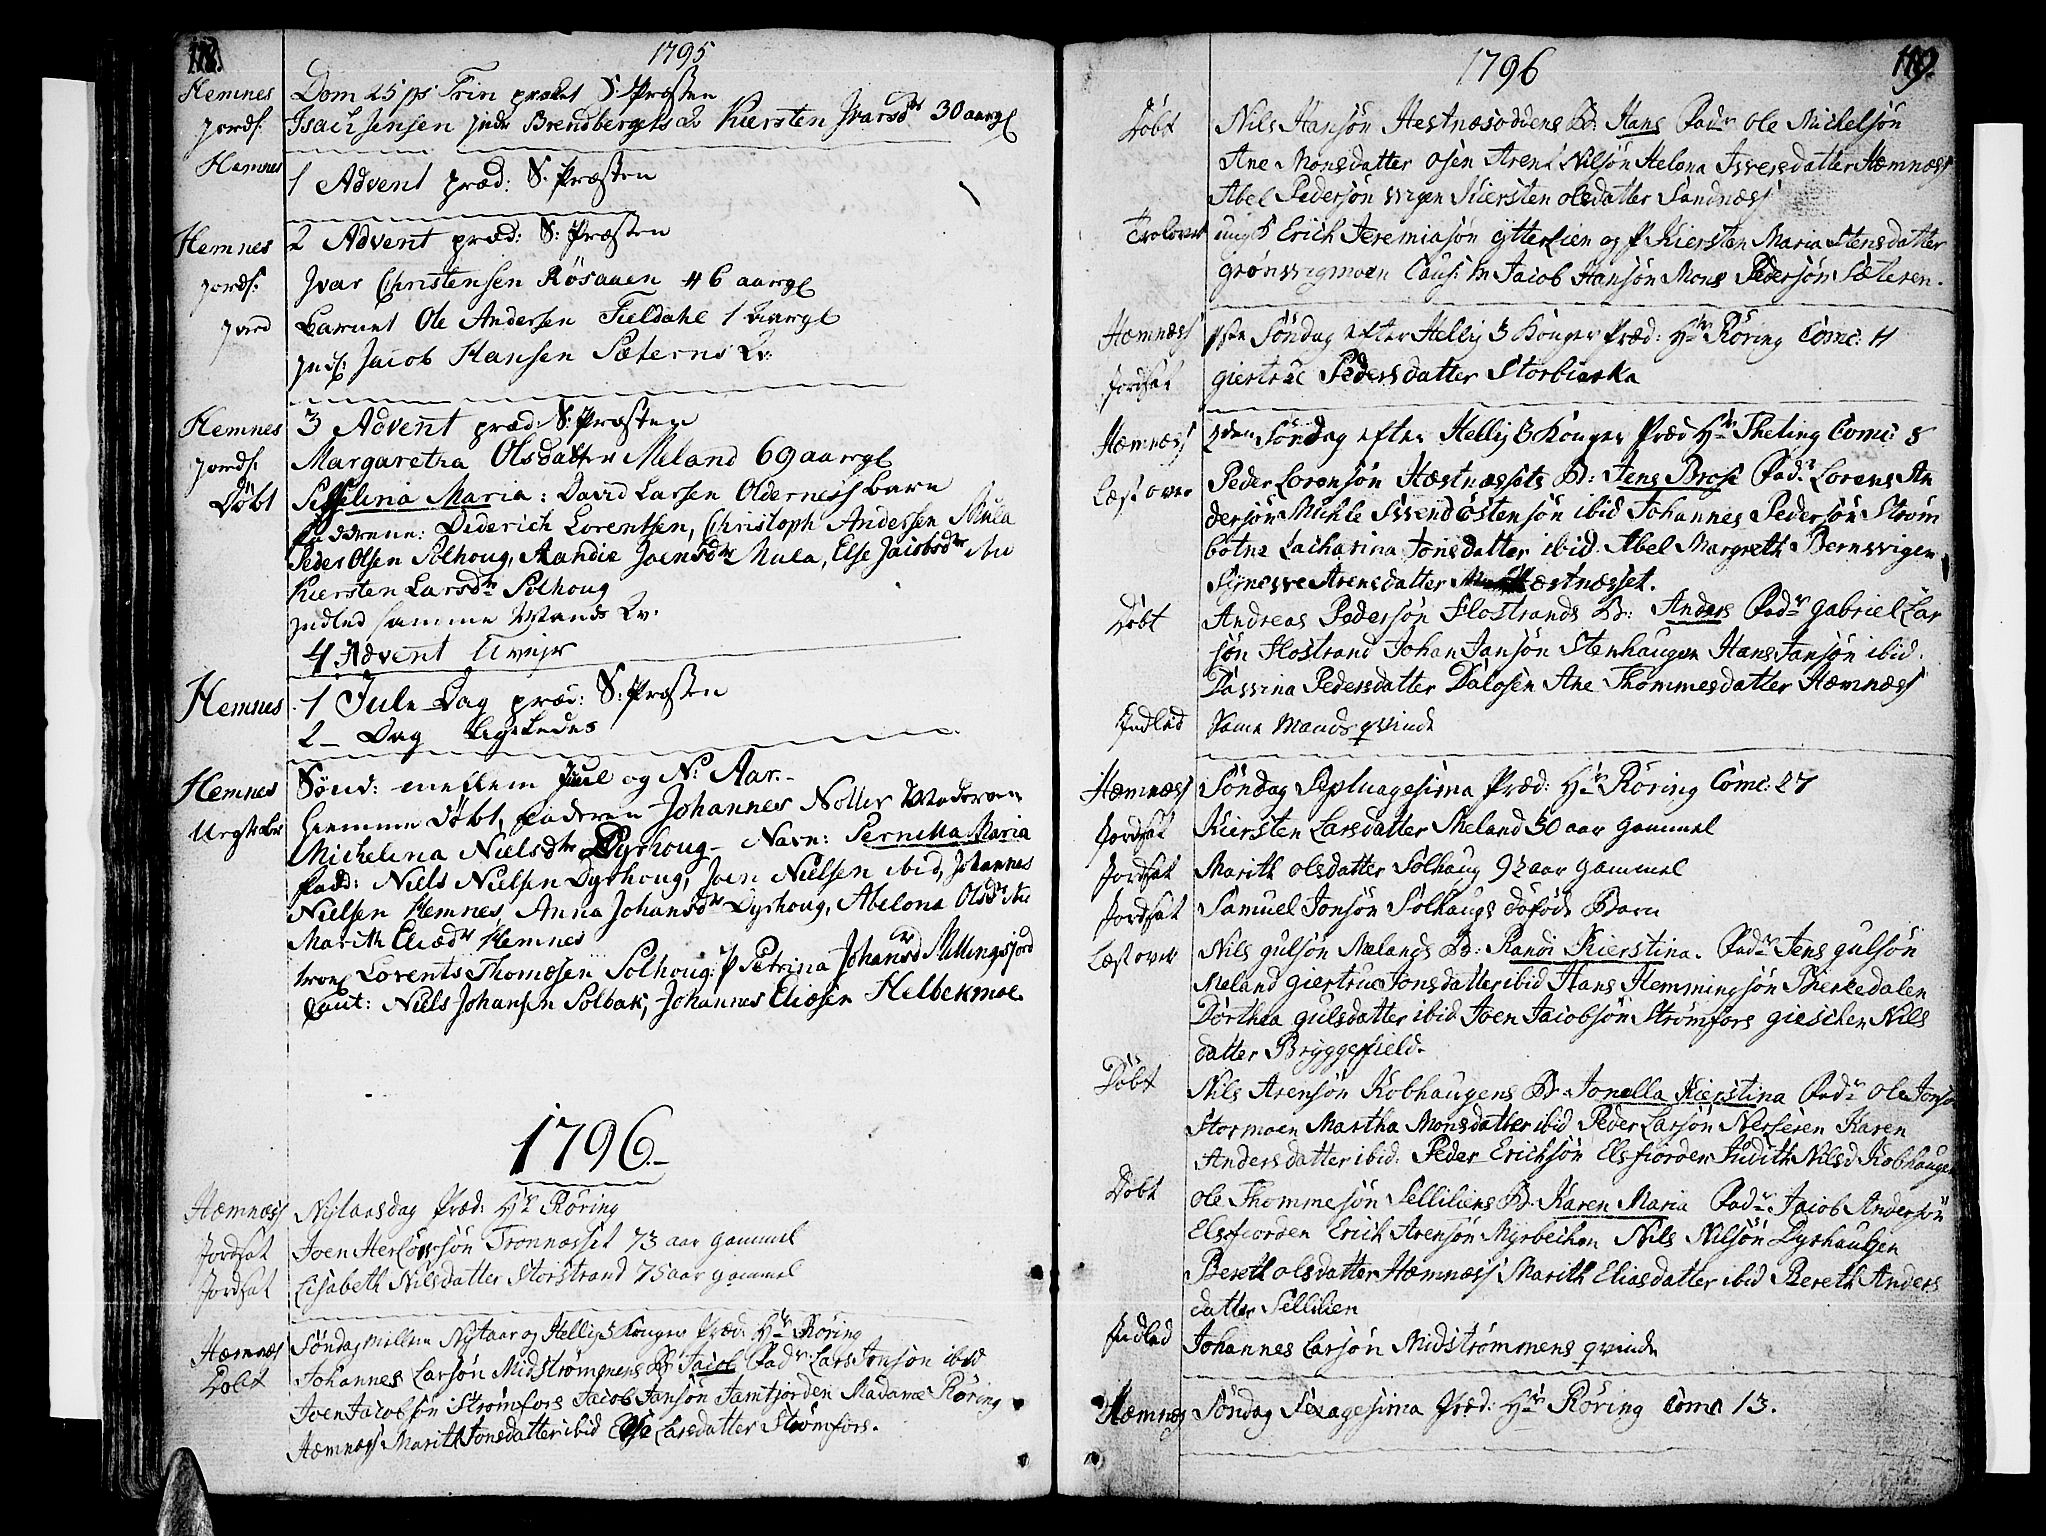 118.
1795
Hemnes Dom 25 p: Trin præket S: Præsten
jords. Isach Jensen Inde Brendbergets Kiersten Ivarsdr 30 aargl
Hemnes 1 Advent præd: S: Præsten
Hemnes 2 Advent præd: S: Præsten
jords. Ivar Christensen Røsaaen 46 aargl
jord Barnet Ole Andersen Fieldahl 1 aargl
Indl: Jacob Hansen Sæterns Qv:
Hemnes 3 Advent præd: S: Præsten
jords. Margaretha Olsdatter Meland 69 aargl
Døbt Sesselina Maria: David Larsen Olderness barn
Fadderne: Diderich Lorentsen, Christoph Andersen Mula
Peder Olsen Solhoug, Randie Joensdr Mula, Else Jacobsdr ibid
Kiersten Larsdr Solhoug
Indled samme Mands Qv.
4 Advent Uvejr
Hemnes 1 Jule Dag præd: S: Præsten
2 - Dag ligeledes
Hemnes Sønd: mellem Juel og N: Aar.
hiemme døbt, Faderen Johannes Moderen
Michelina Nielsdr Dyrhoug - Navn: Pernilla Maria
Fadd: Niels Nielsen Dyrhoug, Joen Nielsen ibid, Johannes
Nielsen Hemnes, Anna Johansdr Dyrhoug, Abelona Olsdr ibid
Marith Eliædr Hemnes
trol Lorents Thomesen Solhoug: P Petrina Johansdr Millingsjord
Caut: Niels Johansen Solbak, Johannes Eliesen Helbekmoe.
1796.
Hæmnæss Nytaarsdag Præd: Hr Röring
Jordsat Joen Herlövsön Tronnæsset 73 aar gammel
Jordsat Lisabeth Nilsdatter Storstrand 75 aar gammel
Hæmnæs Söndag mellem Nytaar og Hellig 3 Konger Præd: Hr Röring
Döbt Johannes Larsön Midströmmens B: Jacob Fadr Lars Jonsön ibid
Joen Jacobsön Strömfors Jacob Jansön Jamtjorden Madame Röring
Hæmnæss Marith Jonsdatter ibid Else Larsdatter Strömfors.
119.
1796
Döbt Nils Hansön Hestnæsoddens B: Hans Fadr Ole Michelsön
Ane Monsdatter Osen Arent Nilsön Helena Iwersdatter Hæmnæss
Abel Pedersön wigen Kiersten olsdatter Sandnæss
Trolovet ungk Erich Jeremiasön ytterlien og P Kiersten Maria Stensdatter
grönswigmoen Caus: m Jacob Hansön Mons Pedersön Sæteren.
Hæmnæss 1ste Söndag efter Hellig 3 Konger Præd: Hr Röring Comc: 4
Jordsat giertrue Pedersdatter Storbierka
Hæmnæss 2den Söndag efter Hellig 3 Konger Præd Hr Theting Comc: 8
Læst over Peder Lorensön Hæstnæssets B: Jens Brose Fadr Lorens An
dersön Muhle Swend östensön ibid Johannes Pedersön Ström
botne Zacharina Jonsdatter ibid Abel Margreth Bernswigen
Synnewe Arensdatter Hæstnæsset.
Döbt Andreas Pedersön Flostrands B: Anders Fadr gabriel Lar
sön Flostrand Johan Jansön Stenhaugen Hans Jansön ibid.
Dassina Pedersdatter Dalosen Ane Thommesdatter Hæmnæss
Indled Same Mands qvinde
Hæmnæss Söndag Septuagesima Præd: Hr Röring Comc: 27
Jordsat Kiersten Larsdatter Meland 50 aar gammel
Jordsat Marith olsdatter Solhaug 92 aar gammel
Jordsat Samuel Jonsön Solhaugs döföde Barn
Læst over Nils gulsön Mælands B: Randi Kierstina. Fadr Jens gulsön
Meland giertrue Jonsdatter ibid Hans Hemmingsön Bierkedalen
Dorthea gulsdatter ibid Joen Jacobsön Strömfors giescher Nils
datter Bryggefield.
Döbt Nils Arensön Kobhaugens B: Jonella Kierstina Fadr Ole Jonsö
Stormoen Martha Monsdatter ibid Peder Larsön Nerleren Karen
Andersdatter ibid. Peder Erichsön Elsfiorden Judith Nilsd Kobhaugen
Döbt Ole Thommesön Selliliens B. Karen Maria Fadr Jacob Andersön
Elsfiorden Erich Arensön Myrbechen Nils Nilsön Dyrhaugen
Bereth olsdatter Hæmnæss Marith Eliasdatter ibid Bereth Anders
datter Sellilien
Indled Johannes Larsön Midströmmens qvinde
Hæmnæs Söndag Sexagesima Præd: Hr Röring Comc 13.